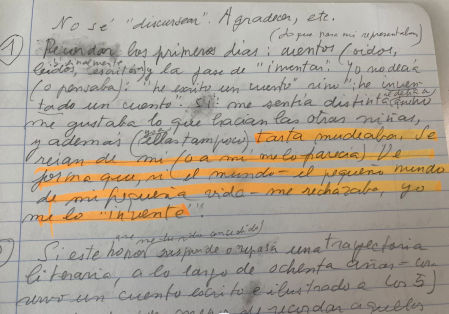 No sé "discursear". Agradecer, etc.
(lo que para mí representaban)
1 Recordar los primeros días: cuentos (oídos,
leídos, escritos) y la fase de "inventar". Yo no decía
(o pensaba): "he escrito un cuento" sino "he inven-
tado un cuento". Si me sentía distinta
me gustaba lo que hacían las otras niñas,
y además (ellas tampoco), tartamudeaba. Se
reían de mí (o a mí me lo parecía). De
forma que, si el mundo - el pequeño mundo
de mi pequeña vida - me rechazaba, yo
me lo "inventé".
que me ha sido concedido)
Si este honor responde o repasa una trayectoria
literaria, a lo largo de ochenta años -
un cuento escrito e ilustrado a los 5)
de recordar aquellos